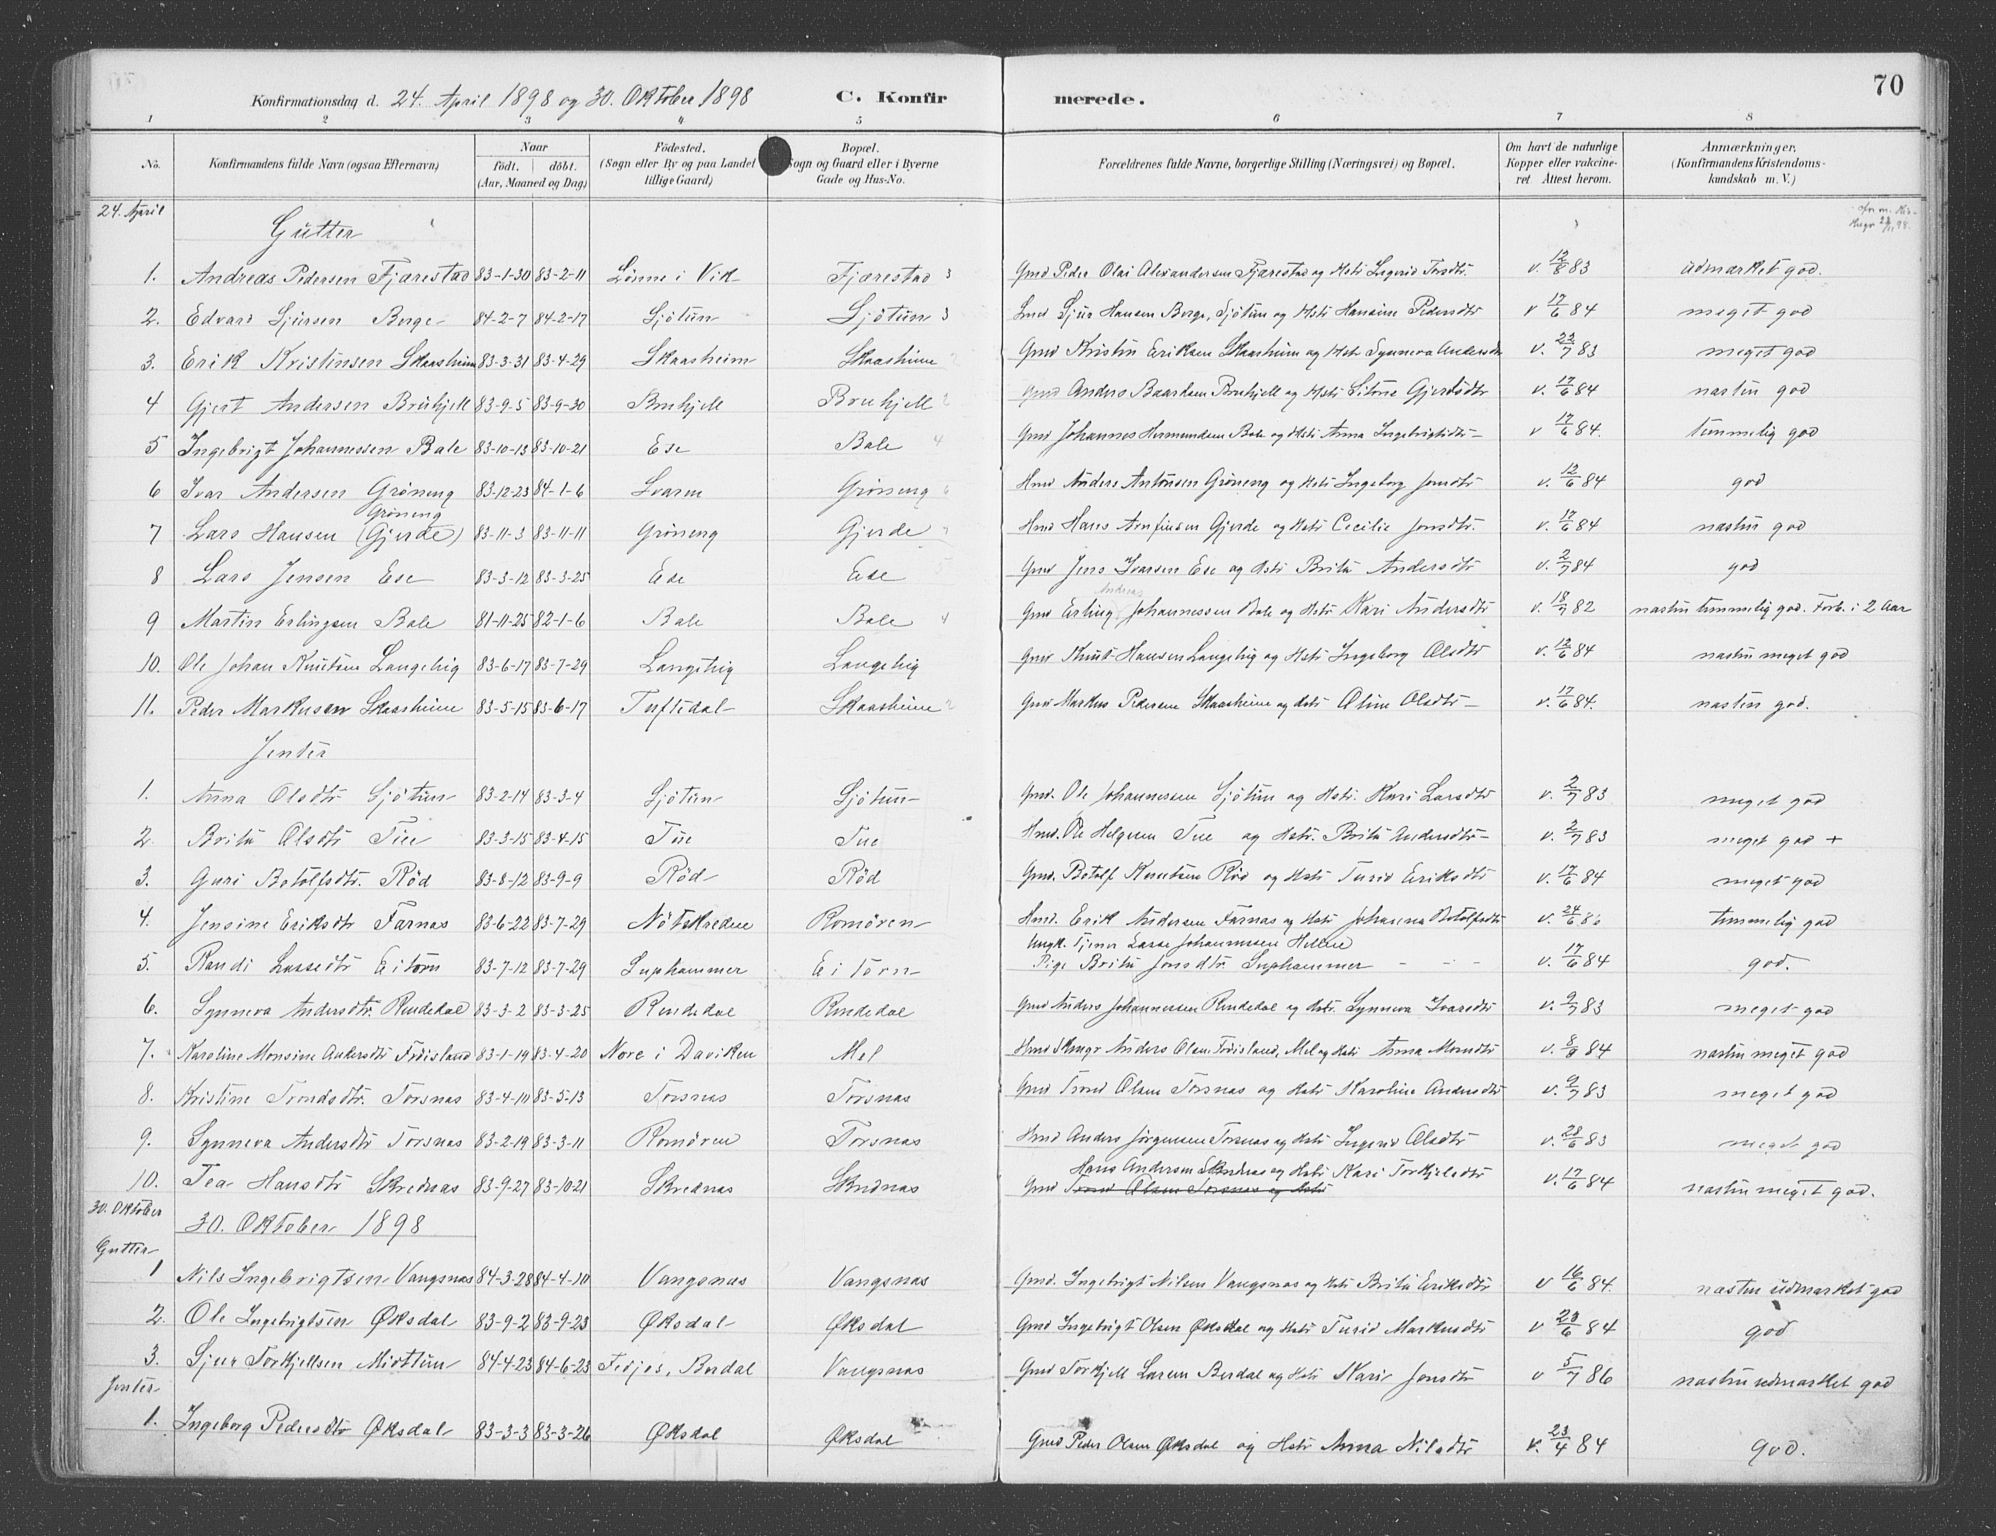 70
Konfirmationsdag d. 24. April 1898 og 30. Oktober 1898 C. Konfirmerede.
1 2 3 4 5 6 7 8
No. Konfirmandens fulde Navn (ogsaa Efternavn) Naar født. døbt. (Aar, Maaned og Dag) Fødested. (Sogn eller By og paa Landet tillige Gaard) Bopæl. Sogn og Gaard eller i Byerne Gade og Hus-No. Forældrenes fulde Navne, borgerlige Stilling (Næringsvei) og Bopæl. Om havt de naturlige Kopper eller vakcineret Attest herom. Anmærkninger. (Konfirmandens Kristendomskundskab m. V.)
24. April
Gutter
1. Andreas Pedersen Fjærestad 83-1-30 83-2-11 Lønne i Vik Fjærestad 3 Gmd Peder Olai Alexandersen Fjærestad og Hstr Ingerid Torsdtr. v. 12/8 83 udmærket god.
2. Edvard Sjursen Berge 84-2-7 84-2-17 Sjøtun Sjøtun 3 Sjur Hansen Berge, Sjøtun og Hstr Hansine Pedersdtr v 17/6 84 meget god
3. Erik Kristensen Skaasheim 83-3-31 83-4-29 Skaasheim Skaasheim 2 Gmd Kristen Eriksen Skaasheim og Hstr Synneva Andersdtr v. 23/7 83 meget god
4 Gjert Andersen Bruhjell 83-9-5 83-9-30 Bruhjell Bruhjell 2 Gmd Anders Baardsen Bruhjell og Hstr Sitsne Gjertsdtr v. 17/6 84 næsten god
5 Ingebrigt Johannessen Bale 83-10-13 83-10-21 Ese Bale 4 Gmd Johannes Hermundsen Bale og Hstr Anna Ingebrigtsdtr v 17/6 84. temmelig god
6 Ivar Andersen Grøneng 83-12-23 84-1-6 Svaren Grøneng 6 Hmd Anders Antonsen Grøneng og Hstr Ingeborg Jonsdtr v. 12/6 84 god
Grøneng
7 Lars Hansen (Gjerde) 83-11-3 83-11-11 Grøneng Gjerde Hmd Hans Arnfinsen Gjerde og Hstr Cecilie Jonsdtr. v. 17/6 84 næsten god
8 Lars Jensen Ese 83-3-12 83-3-25 Ese Ese Gmd Jens Ivarsen Ese og Hstr Brita Andersdtr v. 2/7 84 god
Andreas
9 Martin Erlingsen Bale 81-11-25 82-1-6 Bale Bale 4 Gmd Erling Johannessen Bale og Hstr Kari Andersdtr v. 18/7 82 næsten temmelig god. Forb. i 2 Aar
10. Ole Johan Knutsen Langehig 83-6-17 83-7-29 Langehig Langehig Gmd Knut Hansen Langehig og Hstr Ingeborg Olsdtr v. 12/6 84 næsten meget god
11. Peder Markusen Skaasheim 83-5-15 83-6-17 Tuftedal Skaasheim 2 Gmd Markus Pedersen Skaasheim og Hstr Oline Olsdtr v. 17/6 84. næsten god.
Jenter
1. Anna Olsdtr Sjøtun 83-2-14 83-3-4 Sjøtun Sjøtun Gmd. Ole Johannessen Sjøtun og Hstr. Kari Larsdtr v. 2/7 83 meget god
2. Brita Olsdtr Tue 83-3-15 83-4-15 Tue Tue Hmd. Ole Helgesen Tue og Hstr. Brita Andersdtr v. 2/7 83 meget god +
3. Guri Botolfsdtr. Rød 83-8-12 83-9-9 Rød Rød Gmd. Botolf Knutsen Rød og Hstr Turid Eriksdtr v. 17/6 84 meget god
4. Jensine Eriksdtr Farnæs 83-6-22 83-7-29 Nøtskreden Romøren Hmd. Erik Andersen Farnæs og Hstr Johanna Botolfsdtr v. 24/6 temmelig god
5. Randi Lassedtr Eitorn 83-7-12 83-7-29 Suphammer Eitorn Ungk. Tjener Lasse Johannessen Hellene
Pige Brita Jonsdtr. Suphammer v. 17/6 84 god.
6. Synneva Andersdtr. Rendedal 83-3-2 83-3-25 Rendedal Rendedal Gmd Anders Johannessen Rendedal og Hstr. Synneva Ivarsdtr v. 9/7 83 meget god
7. Karoline Monsine Andersdtr Frøisland 83-1-19 83-4-20 Nore i Daviken Mel Anders Olsen Frøisland, Mel og Hstr Anna Monsdtr v. 8/9 84 næsten meget god
8. Kristine Trondsdtr. Torsnæs 83-4-10 83-5-13 Torsnæs Torsnæs Gmd Trond Olsen Torsnæs og Hstr Karoline Andersdtr v. 9/7 83 meget god
9. Synneva Andersdtr Torsnæs 83-2-19 83-3-11 Romøren Torsnæs Hmd Anders Jørgensen Torsnæs og Hstr Ingerid Olsdtr v. 28/6 83 meget god
Hans Andersen Skrednæs og Hstr Kari Torkjelsdtr
10. Tea Hansdtr Skrednæs 83-9-27 83-10-21 Skrednæs Skrednæs Gmd Trond Olsen Torsnæs og Hstr v. 17/6 84 næsten meget god.
30. Oktober 30. Oktober 1898
Gutter
1 Nils Ingebrigtsen Vangsnæs 84-3-28 84-4-10 Vangsnæs Vangsnæs Gmd. Ingebrigt Nilsen Vangsnæs og Hstr Brita Eriksdtr v 16/6 84. næsten udmærket god
2. Ole Ingebrigtsen Øksdal 83-9-2 83-9-23 Øksdal Øksdal Gmd Ingebrigt Olsen Øksdal og Hstr Turid Markusdtr v 23/6 84 god
3. Sjur Torkjellsen Midttun 84-4-23 84-6-23 Fedjos, Berdal Vangsnæs Gmd Torkjell Larsen Berdal og Hstr Kari Jonsdtr v 5/7 86 næsten udmærket god
Jenter
1. Ingeborg Pedersdtr Øksdal 83-3-3 83-3-26 Øksdal Øksdal Gmd Peder Olsen Øksdal og Hstr Anna Nilsdtr v. 23/4 84 god.